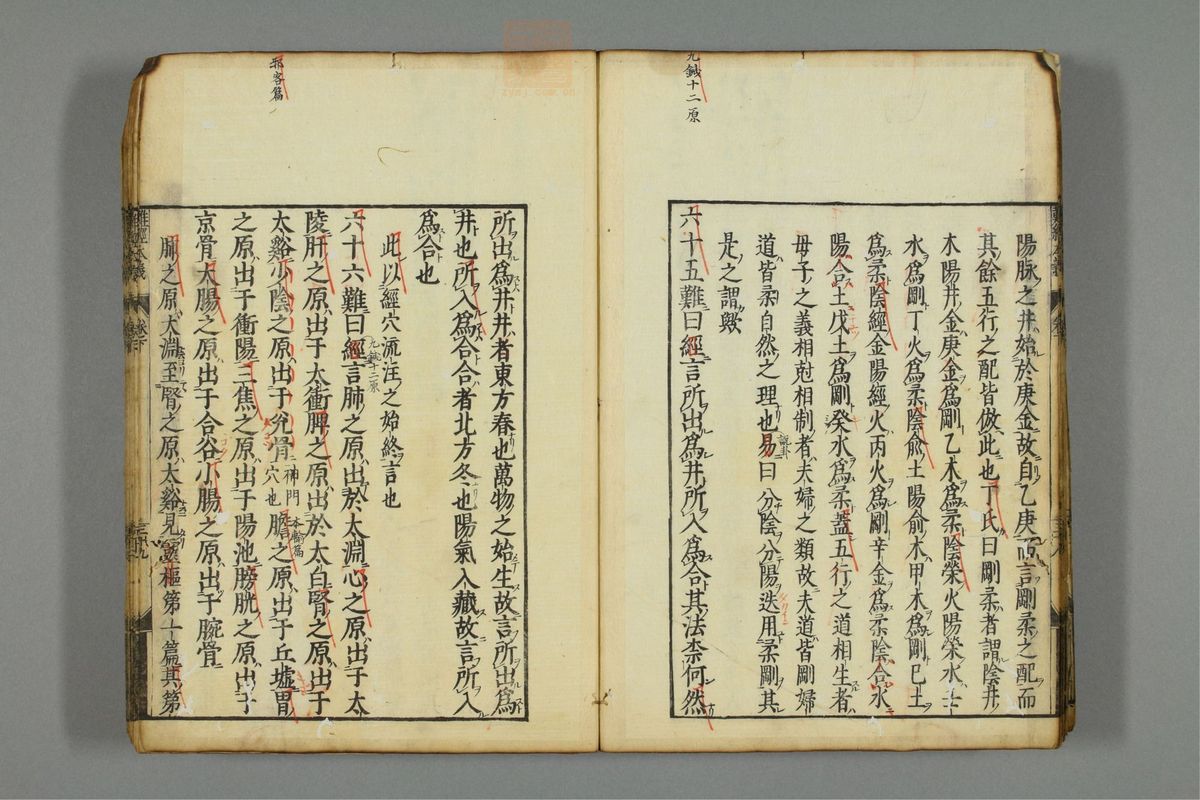 九鍼十二原
陽脉之井始於庚金故自乙庚而言剛柔之配而
其餘五行之配皆倣此也丁氏曰剛柔者謂陰井
木陽井金庚金爲剛乙木爲柔陰滎火陽滎水壬
水爲剛丁火爲柔陰兪土陽兪木甲木爲剛巳土
爲柔陰經金陽經火丙火爲剛辛金爲柔陰合水
陽合土戊土爲剛癸水爲柔蓋五行之道相生者
母子之義相尅相制者夫婦之類故夫道皆剛婦
道皆柔自然之理也易曰分陰分陽迭用柔剛其
說卦
是之謂歟
六十五難曰經言所出爲井所入爲合其法柰何然
邪客篇
所出爲井井者東方春也萬物之始生故言所出爲
井也所入爲合合者北方冬也陽氣入藏故言所入
爲合也
此以經穴流注之始終言也
六十六難曰經言肺之原出於太淵心之原出于太
九鍼十二原
陵肝之原出于太衝脾之原出於太白腎之原出于
太谿少陰之原出于兊骨神門穴也膽之原出于丘墟胃
本輸篇
之原出于衝陽三焦之原出于陽池膀胱之原出于
京骨大腸之原出于合谷小腸之原出于腕骨
肺之原大淵至腎之原太谿見靈樞第一篇其第